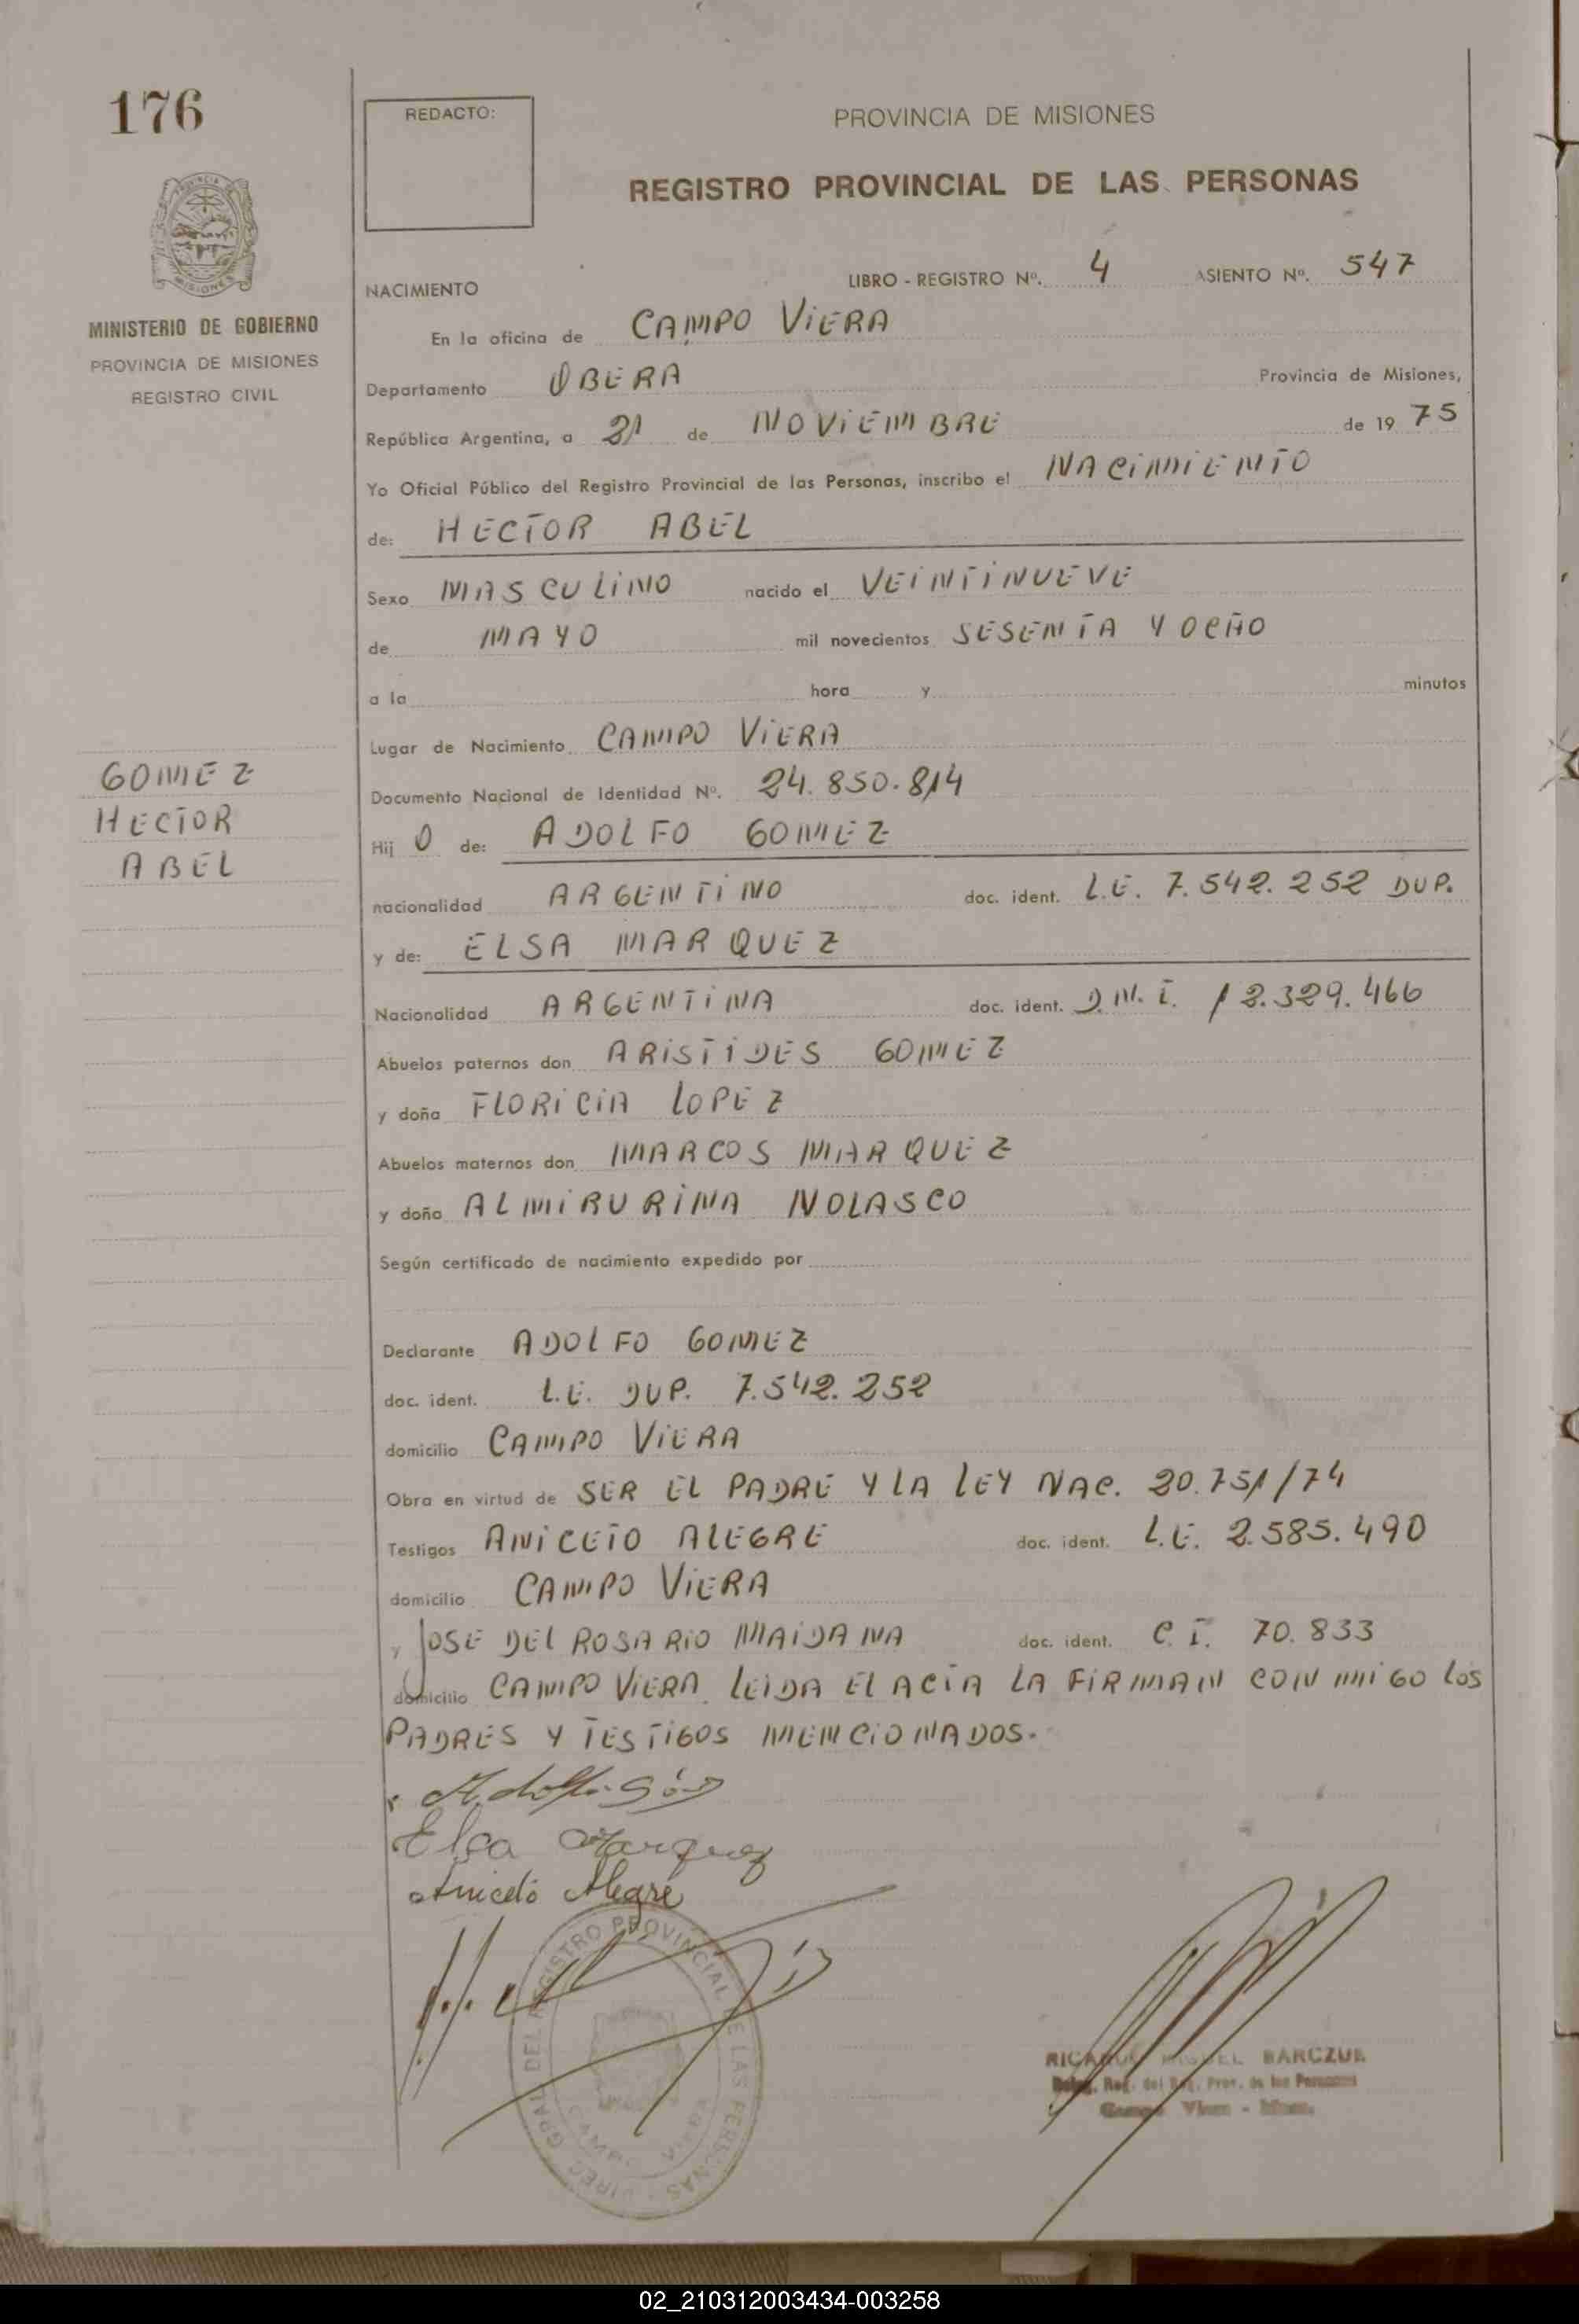 176
REDACTO:
PROVINCIA DE MISIONES
REGISTRO PROVINCIAL DE LAS PERSONAS
PROVINCIA DE
MISIONES
MINISTERIO DE GOBIERNO
PROVINCIA DE MISIONES
REGISTRO CIVIL
NACIMIENTO LIBRO - REGISTRO Nº. 4 ASIENTO Nº. 547
En la oficina de CAMPO VIERA
Departamento OBERA Provincia de Misiones,
República Argentina, a 21 de NOVIEMBRE de 19 75
Yo Oficial Público del Registro Provincial de las Personas, inscribo el NACIMIENTO
de: HECTOR ABEL
Sexo MASCULINO nacido el VEINTINUEVE
de MAYO mil novecientos SESENTA Y OCHO
a la hora y minutos
Lugar de Nacimiento CAMPO VIERA
Documento Nacional de Identidad Nº. 24.850.814
GOMEZ
HECTOR
ABEL
Hij O de: ADOLFO GOMEZ
nacionalidad ARGENTINO doc. ident. L.E. 7.542.252 DUP.
y de: ELSA MARQUEZ
Nacionalidad ARGENTINA doc. ident. D.N.I. 12.329.466
Abuelos paternos don ARISTIDES GOMEZ
y doña FLORICIA LOPEZ
Abuelos maternos don MARCOS MARQUEZ
y doña ALMIRURINA NOLASCO
Según certificado de nacimiento expedido por
Declarante ADOLFO GOMEZ
doc. ident. L.E. DUP. 7.542.252
domicilio CAMPO VIERA
Obra en virtud de SER EL PADRE Y LA LEY NAC. 20.751/74
Testigos ANICETO ALEGRE doc. ident. L.E. 2.585.490
domicilio CAMPO VIERA
y JOSE DEL ROSARIO MAIDANA doc. ident. C.I. 70.833
domicilio CAMPO VIERA. LEIDA EL ACTA LA FIRMAN CONMIGO LOS
PADRES Y TESTIGOS MENCIONADOS.
Elsa Marquez
Aniceto Alegre
REGISTRO PROVINCIAL DE LAS PERSONAS
BARCZUK
02_210312003434-003258